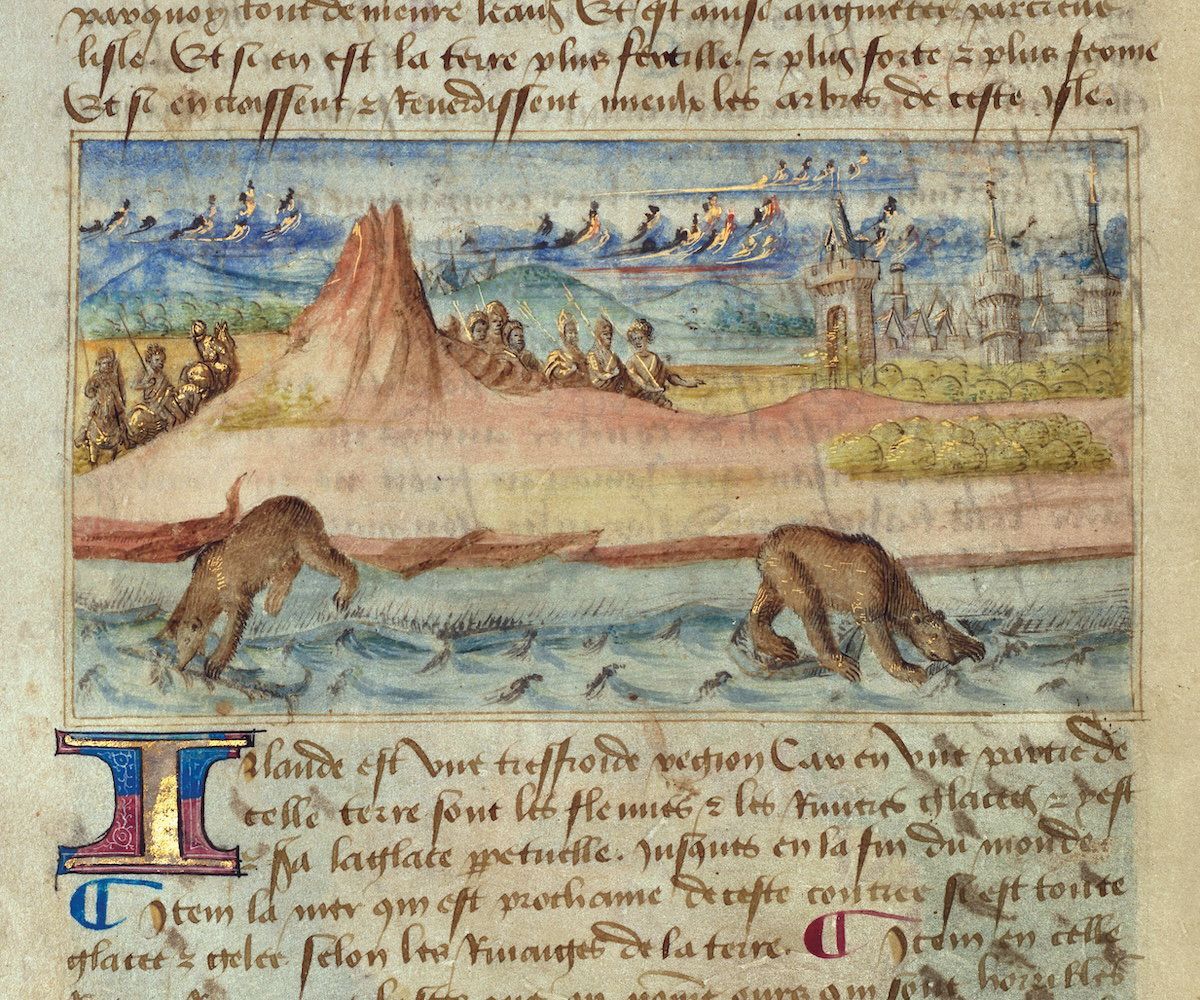 parquoy tout demeure leans Et est ainsi augmetee par ceste
lisle. Et si en est la terre plus fertille. ⁊ plus forte ⁊ plus ferme
Et si en croissent ⁊ Reverdissent mieulx les arbres de ceste isle.
Ilande est vne tresfroide region Car en vne partie de
celle terre sont les fleuves ⁊ les Rivieres glacees ⁊ y est
la glace perpetuelle. Jusques en la fin du monde.
Item la mer qui est prochaine de ceste contree si est toute
glacee ⁊ gelee selon les Rivaiges de la terre. Item en celle
ours qui sont horribles